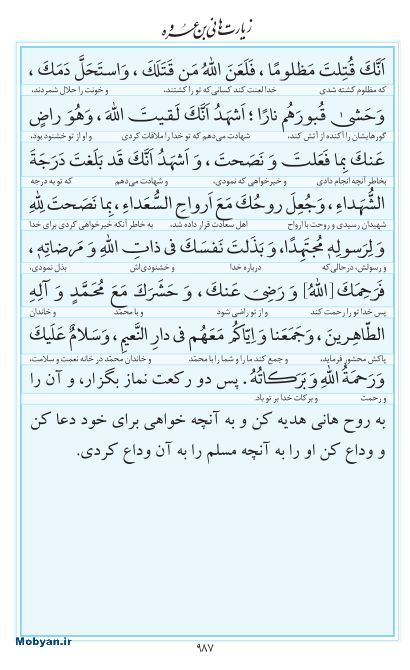 زیارت هانی بن عروه
اَنَّكَ قُتِلتَ مَظلومًا ، فَلَعَنَ اللّٰهُ مَن قَتَلَكَ ، وَاستَحَلَّ دَمَكَ ،
که مظلوم کشته شدی خدا لعنت کند کسانی‌که تو را کشتند، و خونت را حلال شمردند،
وَحَشیٰ قُبورَهُم نارًا ؛ اَشهَدُ اَنَّكَ لَقیتَ اللّٰهَ، وَهُوَ راضٍ
گورهایشان را آکنده از آتش کند. شهادت می‌دهم که تو خدا را ملاقات کردی و او از تو خشنود بود.
عَنكَ بِما فَعَلتَ وَ نَصَحتَ ، وَ اَشهَدُ اَنَّكَ قَد بَلَغتَ دَرَجَةَ
بخاطر آنچه انجام دادی و خیرخواهی که نمودی، و شهادت می‌دهم که تو به درجه
الشُّهَداءِ، وَجُعِلَ روحُكَ مَعَ اَرواحِ السُّعَداءِ، بِما نَصَحتَ لِلّٰهِ
شهیدان رسیدی و روحت با ارواح اهل سعادت قرار داده شد، به خاطر آنکه خیرخواهی کردی برای خدا
وَ لِرَسولِهٖ مُجتَهِدًا، وَ بَذَلتَ نَفسَكَ فی ذاتِ اللّٰهِ وَ مَرضاتِهٖ،
و رسولش، درحالی‌که درباره خدا و خشنودی‌اش بذل نمودی،
فَرَحِمَكَ [اللّٰهُ] وَ رَضِیَ عَنكَ ، وَ حَشَرَكَ مَعَ مُحَمَّدٍ وَ آلِهِ
پس خدا تو را رحمت کند و از تو راضی شود و با محمّد و خاندان
الطّاهِرینَ، وَ جَمَعَنا وَ اِیّاكُم مَعَهُم فی دارِ النَّعیمِ، وَ سَلامٌ عَلَیكَ
پاکش محشور فرماید، و جمع کند ما را و شما را با محمّد و خاندان محمّد در خانه نعمت و سلامت،
وَ رَحمَةُ اللّٰهِ وَ بَرَكاتُهُ . پس دو رکعت نماز بگزار، و آن را
و رحمت و برکات خدا بر تو باد.
به روح هانی هدیه کن و به آنچه خواهی برای خود دعا کن
و وداع کن او را به آنچه مسلم را به آن وداع کردی.
Mobyan.ir
۹۸۷